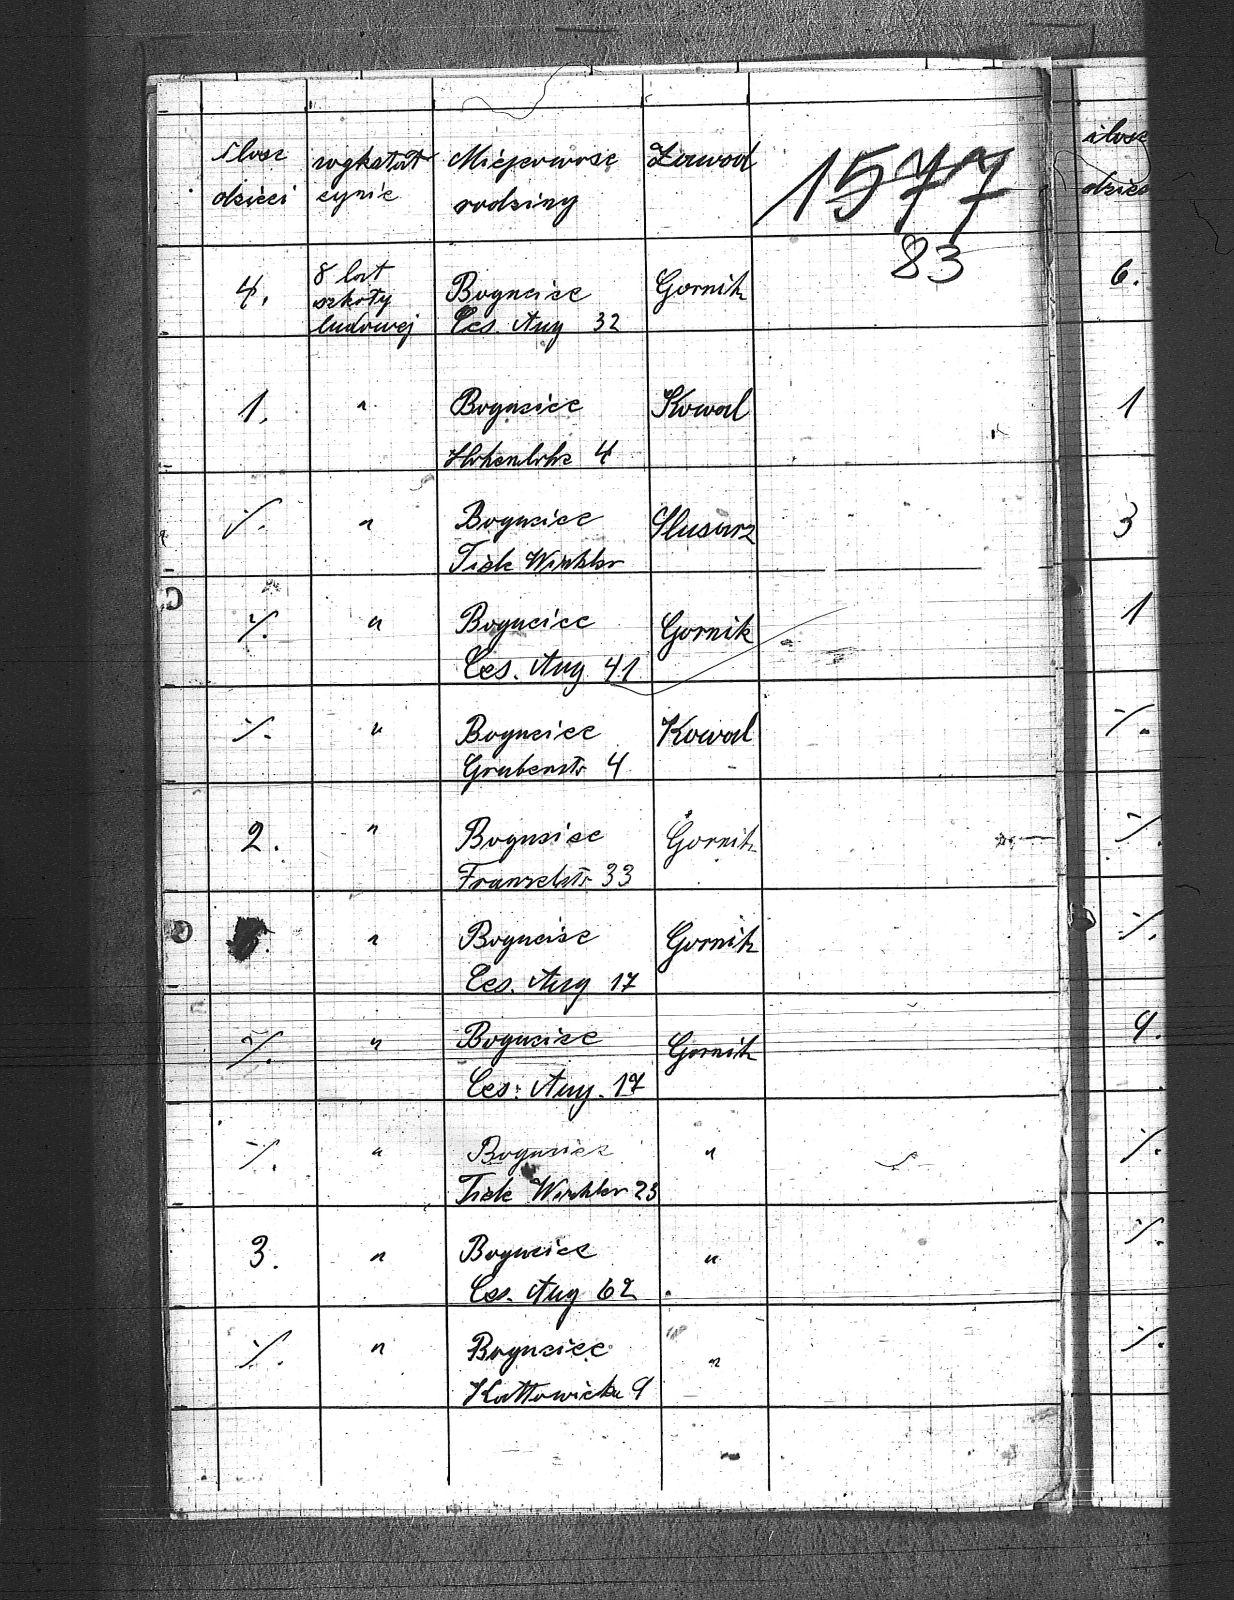 ilosc dzieci wykształcenie Miejscowosc rodziny Zawod 1577
83
4. 8 lat szkoły ludowej Bogucice Ces. Aug 32 Gornik
1. " Bogucice Hohenlohe 4 Kowal
·/. " Bogucice Tiele Winkler Slusarz
·/. " Bogucice Ces. Aug. 41 Gornik
·/. " Bogucice Grubenstr 4 Kowal
2. " Bogucice 33 Gornik
" Bogucice Ces. Aug 17 Gornik
·/. " Bogucice Ces. Aug. 17 Gornik
·/. " Bogucice Tiele Winkler 23 "
3. " Bogucice Ces. Aug 62 "
·/. " Bogucice 9 "
ilosc
6.
1
3
1
·/.
·/.
·/.
9.
·/.
·/.
·/.